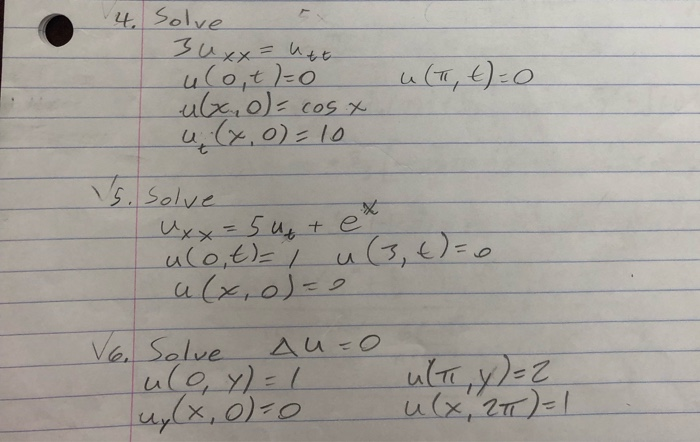 √4. Solve
3u_xx = u_tt
u(0,t)=0 u(π,t)=0
u(x,0)= cos x
u_t(x,0)=10
√5. Solve
u_xx = 5u_t + e^x
u(0,t)=1 u(3,t)=0
u(x,0)=0
√6. Solve Δu=0
u(0,y)=1 u(π,y)=2
u_y(x,0)=0 u(x,2π)=1